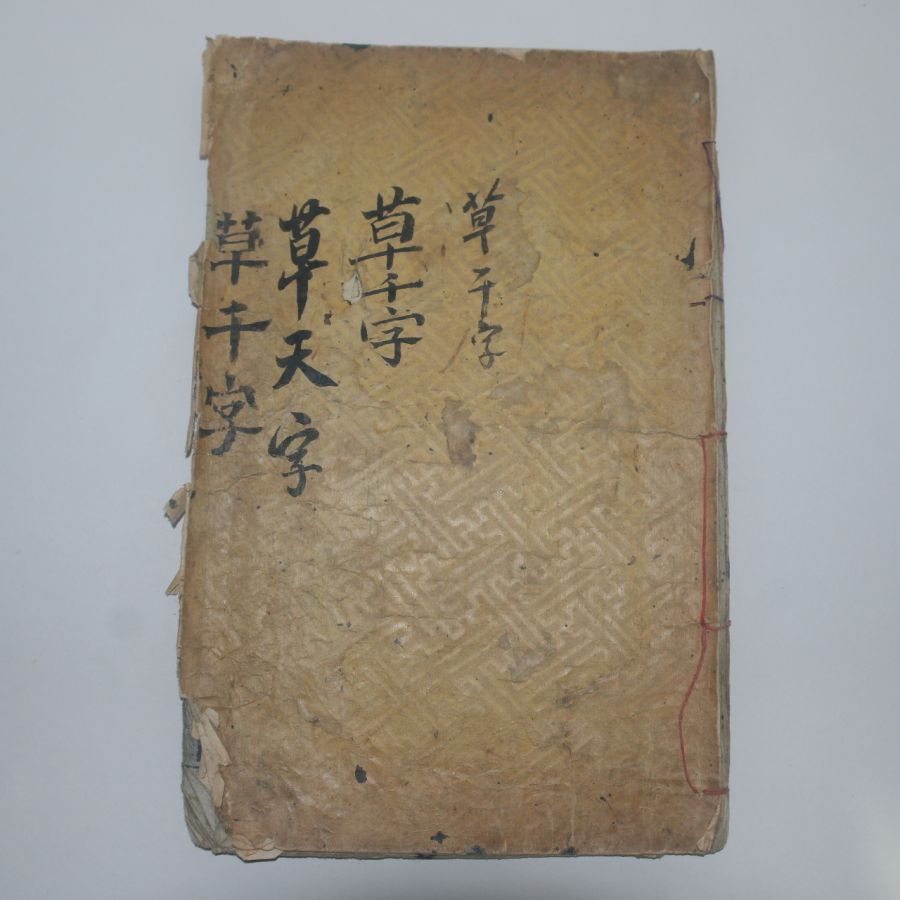 草千字
草千字
草天字
草千字